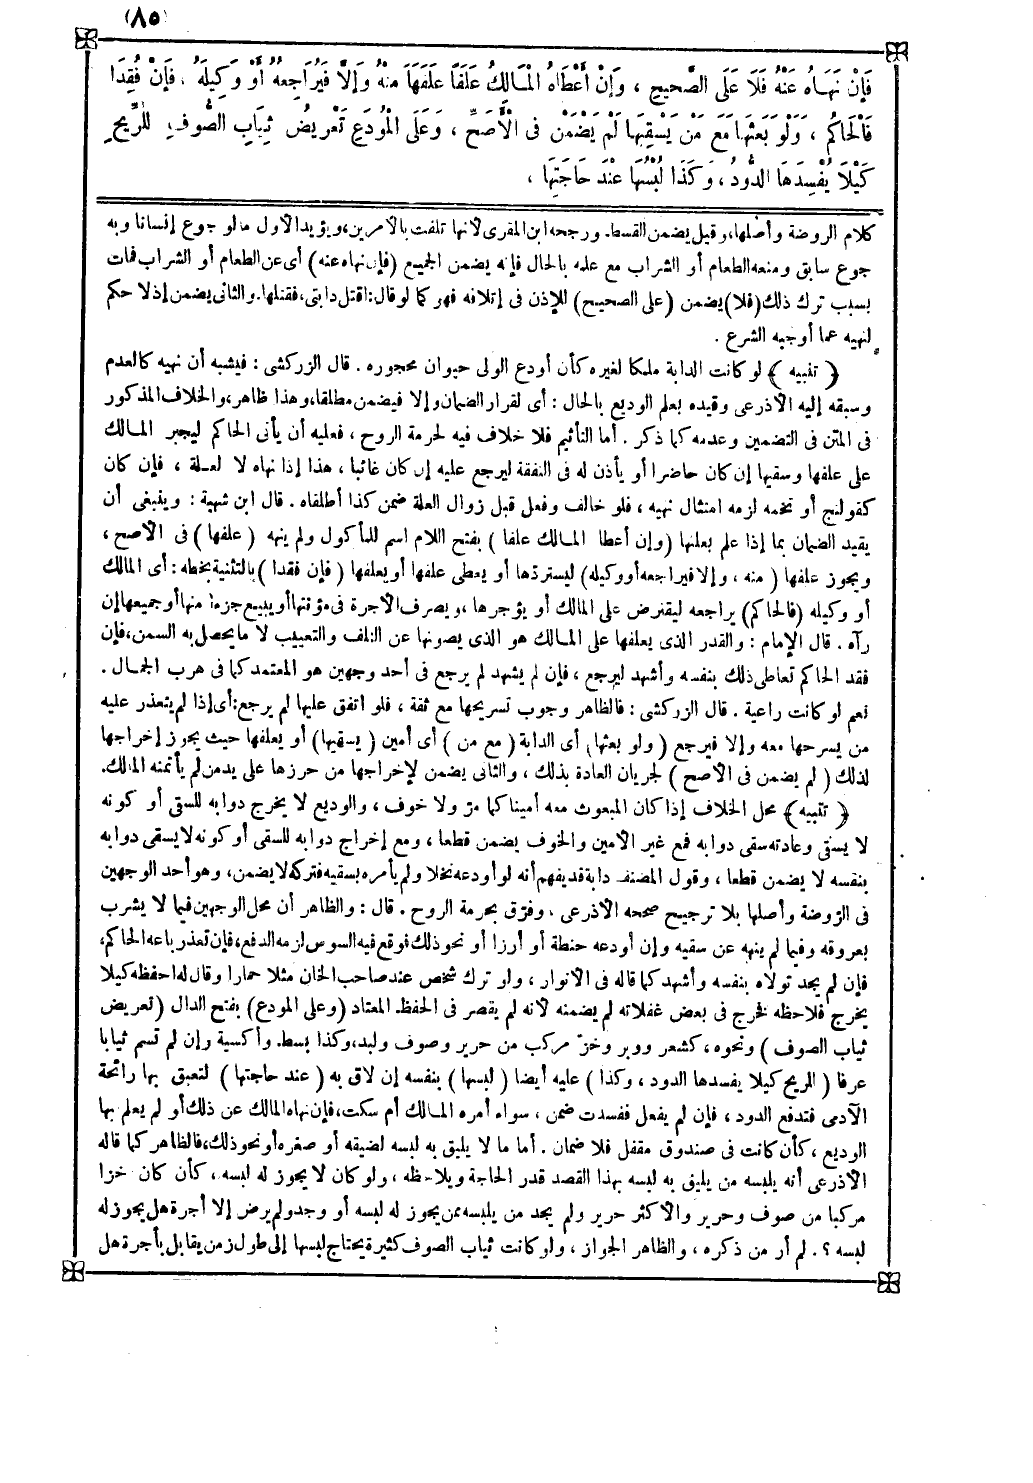 (٨٥)
فَإِنْ نَهَاهُ عَنْهُ فَلَا عَلَى الصَّحِيحِ ، وَإِنْ أَعْطَاهُ الْمَالِكُ عَلَفًا عَلَفَهَا مِنْهُ وَإِلَّا فَيُرَاجِعُهُ أَوْ وَكِيلَهُ ، فَإِنْ فُقِدَا
فَالْحَاكِمُ ، وَلَوْ بَعَثَهَا مَعَ مَنْ يَسْقِيهَا لَمْ يَضْمَنْ فِى الْأَصَحِّ ، وَعَلَى الْمُودَعِ تَعْرِيضُ ثِيَابِ الصُّوفِ لِلرِّيحِ
كَيْلَا يُفْسِدَهَا الدُّودُ ، وَكَذَا لُبْسُهَا عِنْدَ حَاجَتِهَا ،
كلام الروضة وأصلها، وقيل يضمن القسط. ورجحه ابن المقرى لأنها تلفت بالأمرين، ويؤيد الأول مالو جوع إنسانا وبه
جوع سابق ومنعه الطعام أو الشراب مع علمه بالحال فإنه يضمن الجميع (فإن نهاه عنه) أى عن الطعام أو الشراب فماتت
بسبب ترك ذلك (فلا) يضمن (على الصحيح) للإذن فى إتلافه فهو كما لو قال: اقتل دابتى، فقتلها. والثانى يضمن إذ لا حكم
لنهيه عما أوجبه الشرع .
﴿ تنبيه ﴾ لو كانت الدابة ملكا لغيره كأن أودع الولى حيوان محجوره . قال الزركشى : فيشبه أن نهيه كالعدم
وسبقه إليه الأذرعى وقيده بعلم الوديع بالحال : أى لقرار الضمان وإلا فيضمن مطلقا، وهذا ظاهر، والخلاف المذكور
فى المتن فى التضمين وعدمه كما ذكر . أما التأثيم فلا خلاف فيه لحرمة الروح ، فعليه أن يأتى الحاكم ليجبر المالك
على علفها وسقيها إن كان حاضرا أو يأذن له فى النفقة ليرجع عليه إن كان غائبا ، هذا إذا نهاه لا لعلة ، فإن كان
كقولنج أو تخمه لزمه امتثال نهيه ، فلو خالف وفعل قبل زوال العلة ضمن كذا أطلقاه . قال ابن شهبة : وينبغى أن
يقيد الضمان بما إذا علم بعلتها (وإن أعطا المالك علفا ) بفتح اللام اسم للمأكول ولم ينهه ( علفها ) فى الأصح ،
ويجوز علفها ( منه ، وإلا فيراجعه أو وكيله) ليستردّها أو يعطى علفها أو يعلفها ( فإن فقدا ) بالتثنية بخطه : أى المالك
أو وكيله (فالحاكم) يراجعه ليقترض على المالك أو يؤجرها ، ويصرف الأجرة فى مؤنتها أو يبيع جزءا منها أو جميعها إن
رآه . قال الإمام : والقدر الذى يعلفها على المالك هو الذى يصونها عن التلف والتعييب لا ما يحصل به السمن، فإن
فقد الحاكم تعاطى ذلك بنفسه وأشهد ليرجع ، فإن لم يشهد لم يرجع فى أحد وجهين هو المعتمد كما فى هرب الجمال .
نعم لو كانت راعية . قال الزركشى : فالظاهر وجوب تسريحها مع ثقة ، فلو اتفق عليها لم يرجع: أى إذا لم يتعذر عليه
من يسرحها معه وإلا فيرجع ( ولو بعثها) أى الدابة ( مع من ) أى أمين ( يسقيها) أو يعلفها حيث يجوز إخراجها
لذلك ( لم يضمن فى الأصح ) لجريان العادة بذلك ، والثانى يضمن لإخراجها من حرزها على يد من لم يأتمنه المالك.
﴿ تنبيه ﴾ محل الخلاف إذا كان المبعوث معه أمينا كما مرّ ولا خوف ، والوديع لا يخرج دوابه للسقى أو كونه
لا يسقى وعادته سقى دوابه فمع غير الأمين والخوف يضمن قطعا ، ومع إخراج دوابه للسقى أو كونه لا يسقى دوابه
بنفسه لا يضمن قطعا ، وقول المصنف دابة قد يفهم أنه لو أودعه نخلا ولم يأمره بسقيه فتركه لا يضمن، وهو أحد الوجهين
فى الرّوضة وأصلها بلا ترجيح صححه الأذرعى ، وفرّق بحرمة الروح . قال : والظاهر أن محل الوجهين فيما لا يشرب
بعروقه وفيما لم ينهه عن سقيه وإن أودعه حنطة أو أرزا أو نحو ذلك فوقع فيه السوس لزمه الدفع، فإن تعذر باعه الحاكم،
فإن لم يجد تولاه بنفسه وأشهد كما قاله فى الأنوار ، ولو ترك شخص عند صاحب الخان مثلا حمارا وقال له احفظه كيلا
يخرج فلاحظه فخرج فى بعض غفلاته لم يضمنه لأنه لم يقصر فى الحفظ المعتاد (وعلى المودع) بفتح الدال (تعريض
ثياب الصوف ) ونحوه ، كشعر ووبر وخزّ مركب من حرير وصوف ولبد، وكذا بسط. وأكسية وإن لم تسم ثيابا
عرفا ( للريح كيلا يفسدها الدود ، وكذا ) عليه أيضا ( لبسها ) بنفسه إن لاق به ( عند حاجتها ) لتعبق بها رائحة
الآدمى فتدفع الدود ، فإن لم يفعل ففسدت ضمن ، سواء أمره المالك أم سكت، فإن نهاه المالك عن ذلك أو لم يعلم بها
الوديع ، كأن كانت فى صندوق مقفل فلا ضمان . أما ما لا يليق به لبسه لضيقه أو صغره أو نحو ذلك، فالظاهر كما قاله
الأذرعى أنه يلبسه من يليق به لبسه بهذا القصد قدر الحاجة ويلاحظه ، ولو كان لا يجوز له لبسه ، كأن كان خزا
مركبا من صوف وحرير والأكثر حرير ولم يجد من يلبسه ممن يجوز له لبسه أو وجد ولم يرض إلا أجرة هل يجوز له
لبسه ؟ . لم أر من ذكره ، والظاهر الجواز ، ولو كانت ثياب الصوف كثيرة يحتاج لبسها إلى طول زمن يقابل بأجرة هل